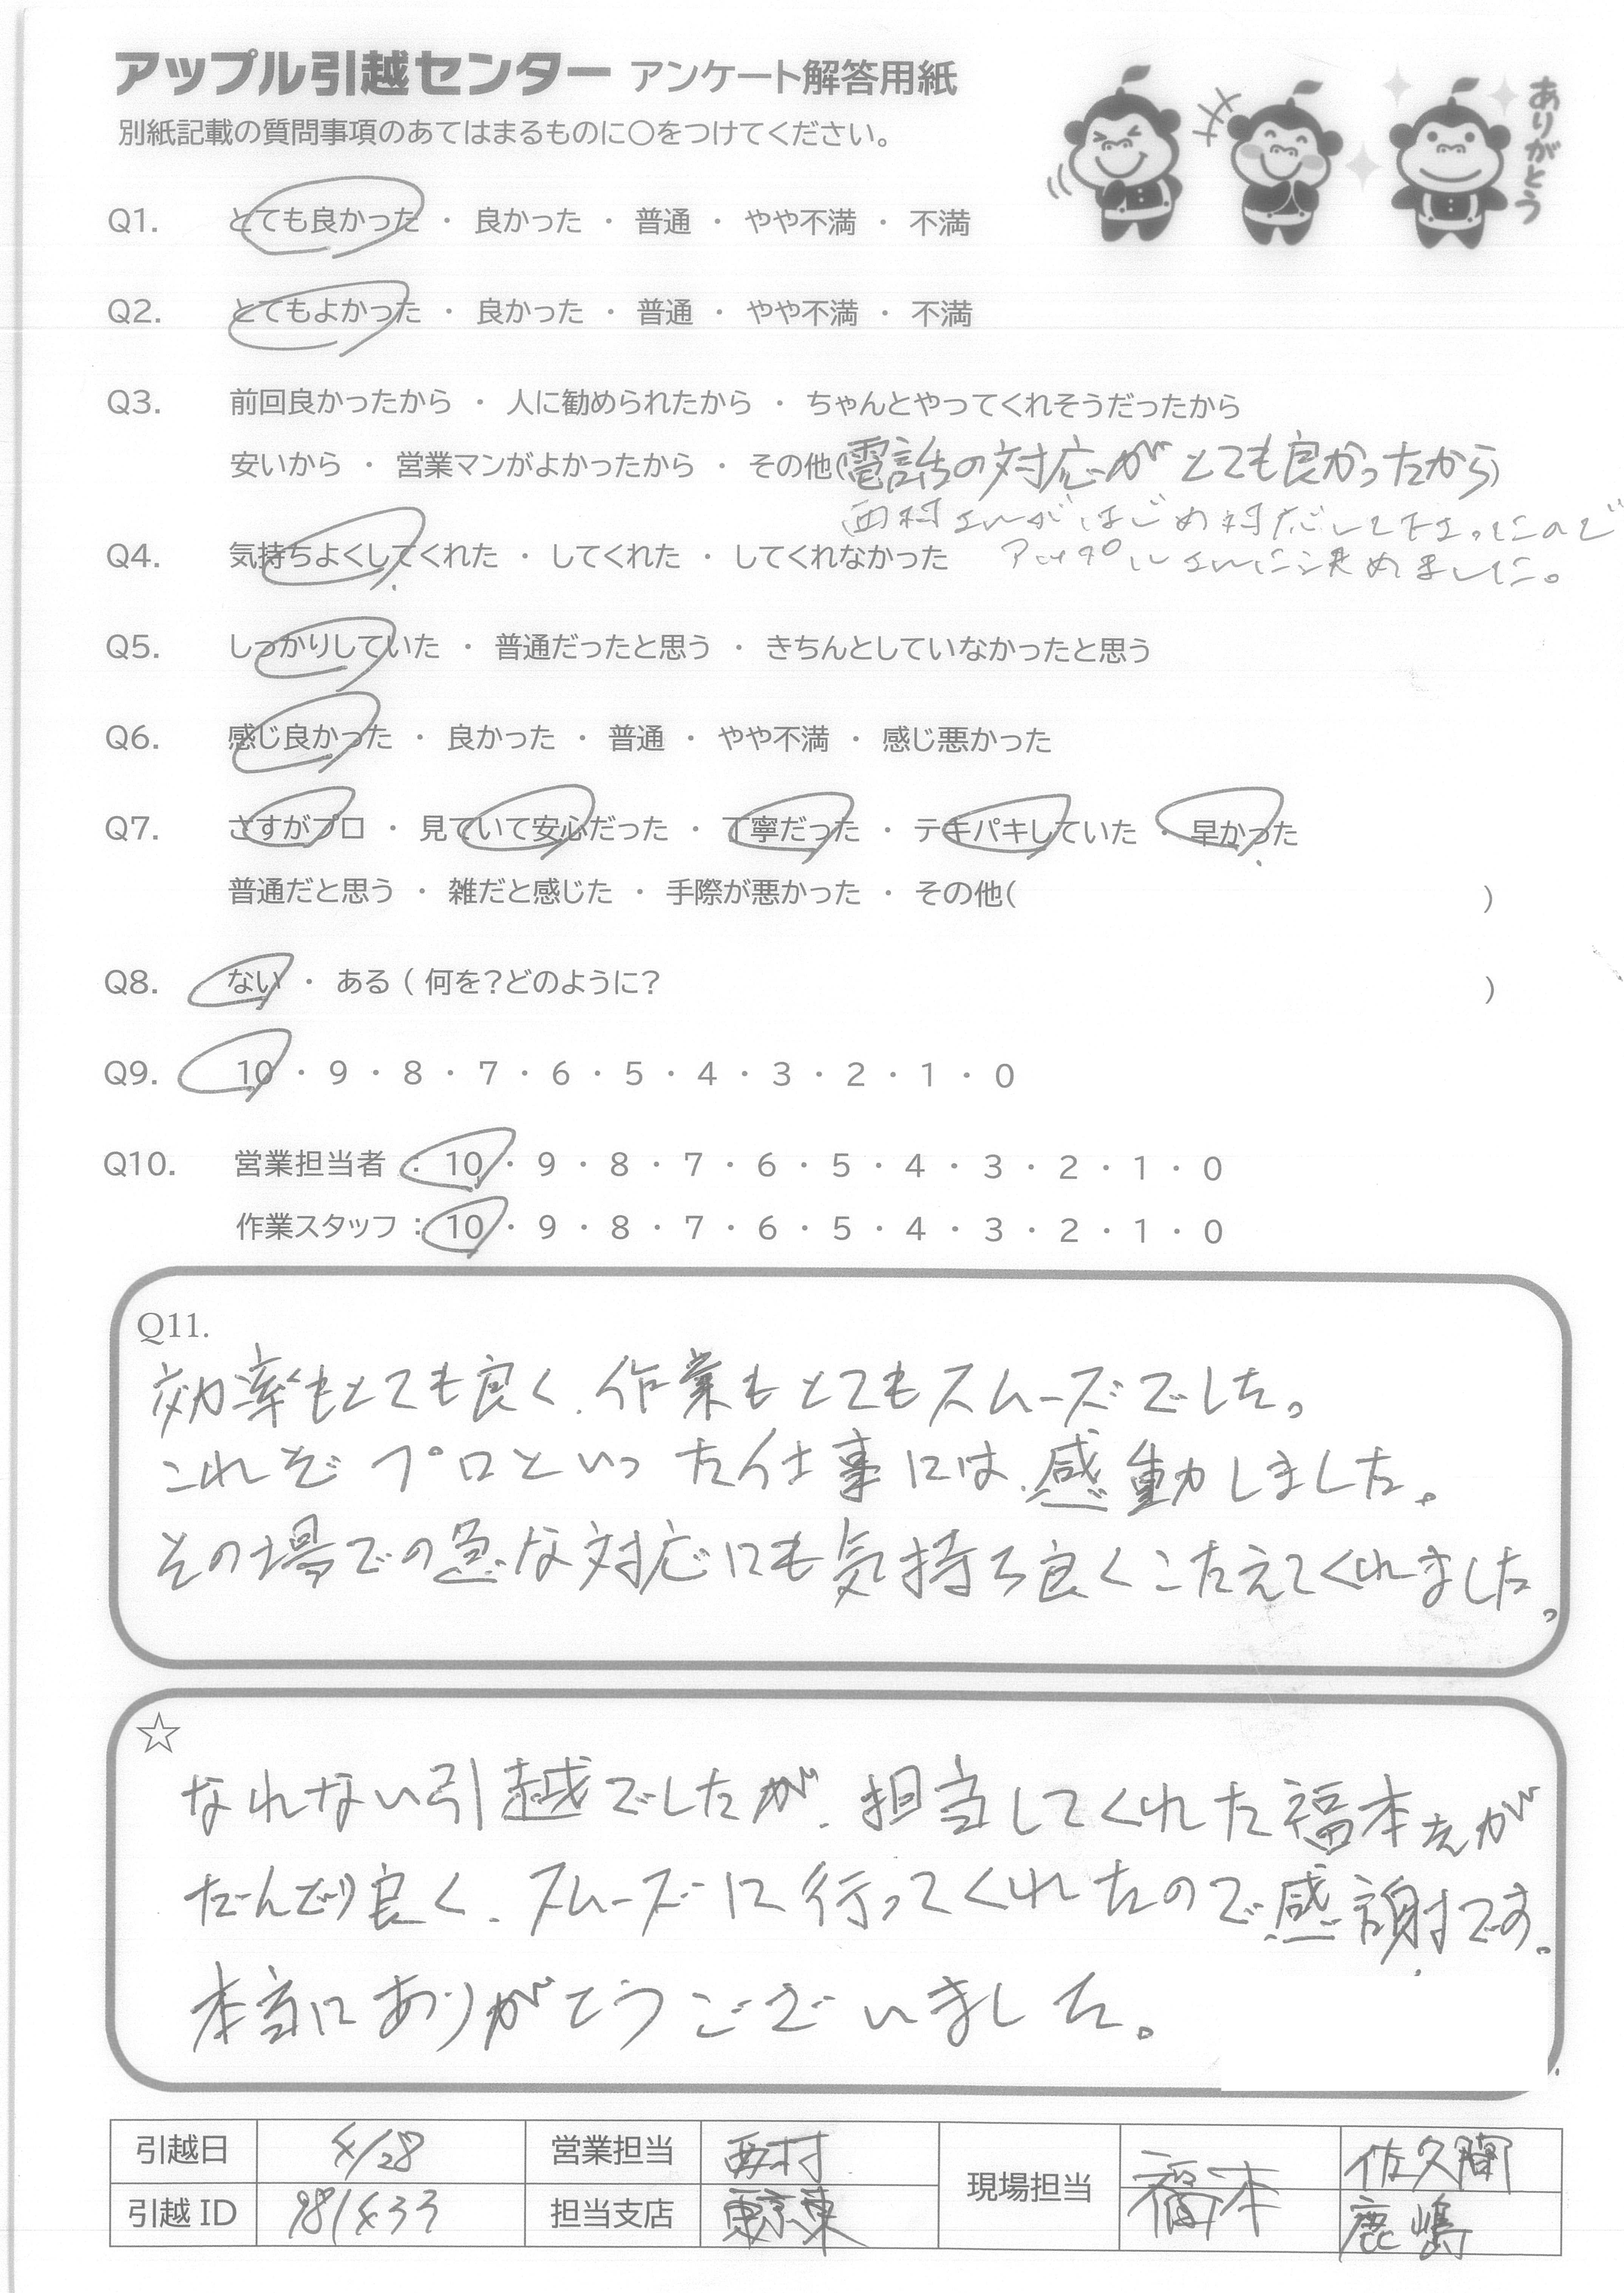 アップル引越センター アンケート解答用紙
別紙記載の質問事項のあてはまるものに○をつけてください。
ありがとう
Q1. とても良かった ・ 良かった ・ 普通 ・ やや不満 ・ 不満
Q2. とてもよかった ・ 良かった ・ 普通 ・ やや不満 ・ 不満
Q3. 前回良かったから ・ 人に勧められたから ・ ちゃんとやってくれそうだったから
安いから ・ 営業マンがよかったから ・ その他(電話の対応がとても良かったから)
西村さんがはじめ対応して下さったので
Q4. 気持ちよくしてくれた ・ してくれた ・ してくれなかった アップルさんに決めました。
Q5. しっかりしていた ・ 普通だったと思う ・ きちんとしていなかったと思う
Q6. 感じ良かった ・ 良かった ・ 普通 ・ やや不満 ・ 感じ悪かった
Q7. さすがプロ ・ 見ていて安心だった ・ 丁寧だった ・ テキパキしていた ・ 早かった
普通だと思う ・ 雑だと感じた ・ 手際が悪かった ・ その他( )
Q8. ない ・ ある ( 何を?どのように? )
Q9. 10 ・ 9 ・ 8 ・ 7 ・ 6 ・ 5 ・ 4 ・ 3 ・ 2 ・ 1 ・ 0
Q10. 営業担当者 : 10 ・ 9 ・ 8 ・ 7 ・ 6 ・ 5 ・ 4 ・ 3 ・ 2 ・ 1 ・ 0
作業スタッフ : 10 ・ 9 ・ 8 ・ 7 ・ 6 ・ 5 ・ 4 ・ 3 ・ 2 ・ 1 ・ 0
Q11.
効率もとても良く、作業もとてもスムーズでした。
これぞプロといった仕事には、感動しました。
その場での急な対応にも気持ち良くこたえてくれました。
☆
なれない引越でしたが、担当してくれた福本さんが
だんどり良く、スムーズに行ってくれたので感謝です。
本当にありがとうございました。
引越日 4/28 営業担当 西村 現場担当 福本 佐久間
引越 ID 981433 担当支店 東京東 鹿嶋